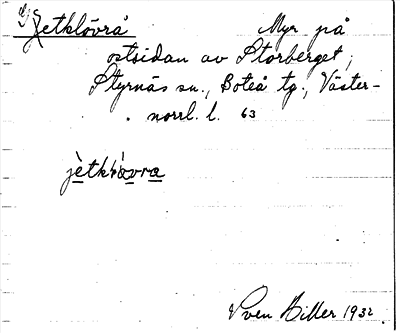 Jetklövrå Myr på
ostsidan av Storberget,
Styrnäs sn., Boteå tg., Väster-
norrl. l. 63
jètklòvra
Sven Hiller 1932.